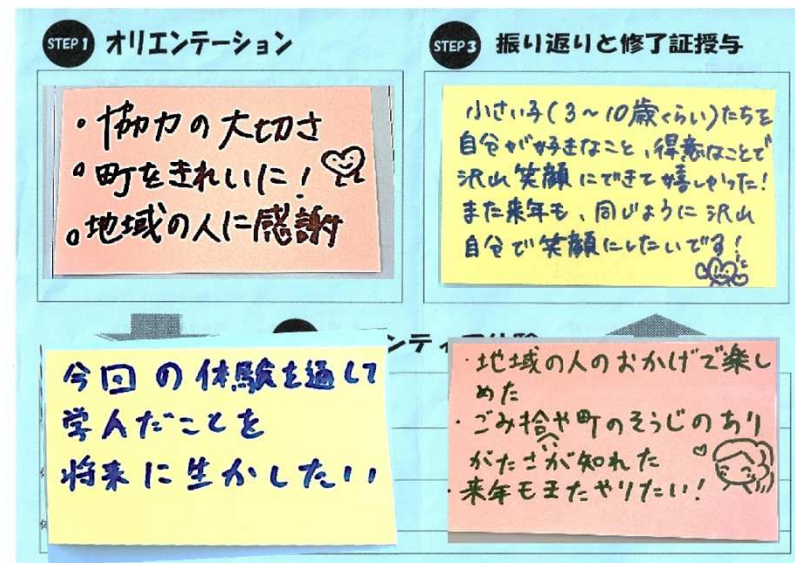 STEP1 オリエンテーション
・協力の大切さ
・町をきれいに!
・地域の人に感謝
STEP3 振り返りと修了証授与
小さい子(3~10歳くらい)たちを
自分が好きなこと、得意なことで
沢山笑顔にできて嬉しかった!
また来年も、同じように沢山
自分で笑顔にしたいです!
ンティア体験
今回の体験を通して
学んだことを
将来に生かしたい
・地域の人のおかげで楽し
めた
・ごみ拾いや町のそうじのあり
がたさが知れた
・来年もまたやりたい!